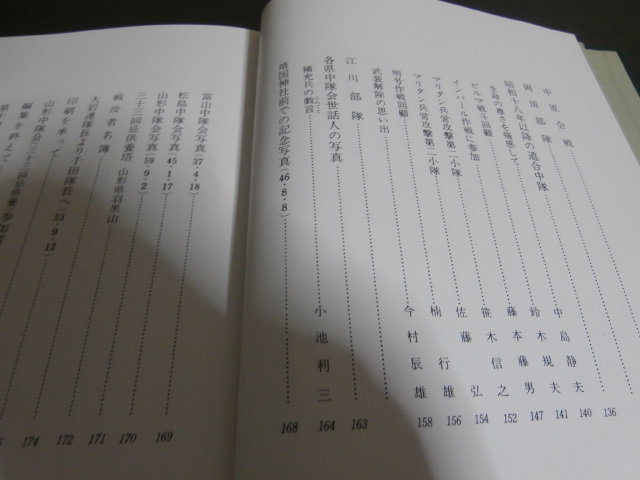 中原会戦 136
岡田部隊 140
昭和十八年以降の道合中隊 中島静夫 141
生命の尊さを痛感して 鈴木規夫 147
ビルマ戦斗回顧 藤本藤男 152
インドール作戦に参加 笹木信之 154
マリタン兵営攻撃第二小隊 佐藤弘 156
マリタン兵営攻撃第二小隊 楠行雄 158
明号作戦回顧 今村辰雄
武装解除の思い出
江川部隊
各県中隊会世話人の写真 163
補充兵の戯言 小池利三 164
靖国神社前での記念写真(46・8・8) 168
富山中隊会写真(37・4・18) 169
松島中隊会写真(45・1・17) 170
山形中隊会写真(59・9・2) 171
三十三回忌供養塔 山形県羽黒山 172
戦没者名簿 174
大岩連隊長より千田隊長へ(53・9・12)
印刷を承って
編集を終えて
山形中隊会三十三回忌供養参加者